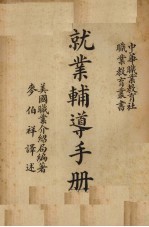 中華職業教育社
職業教育叢書
就業輔導手册
美國職業介紹局編著
麥伯祥譯述